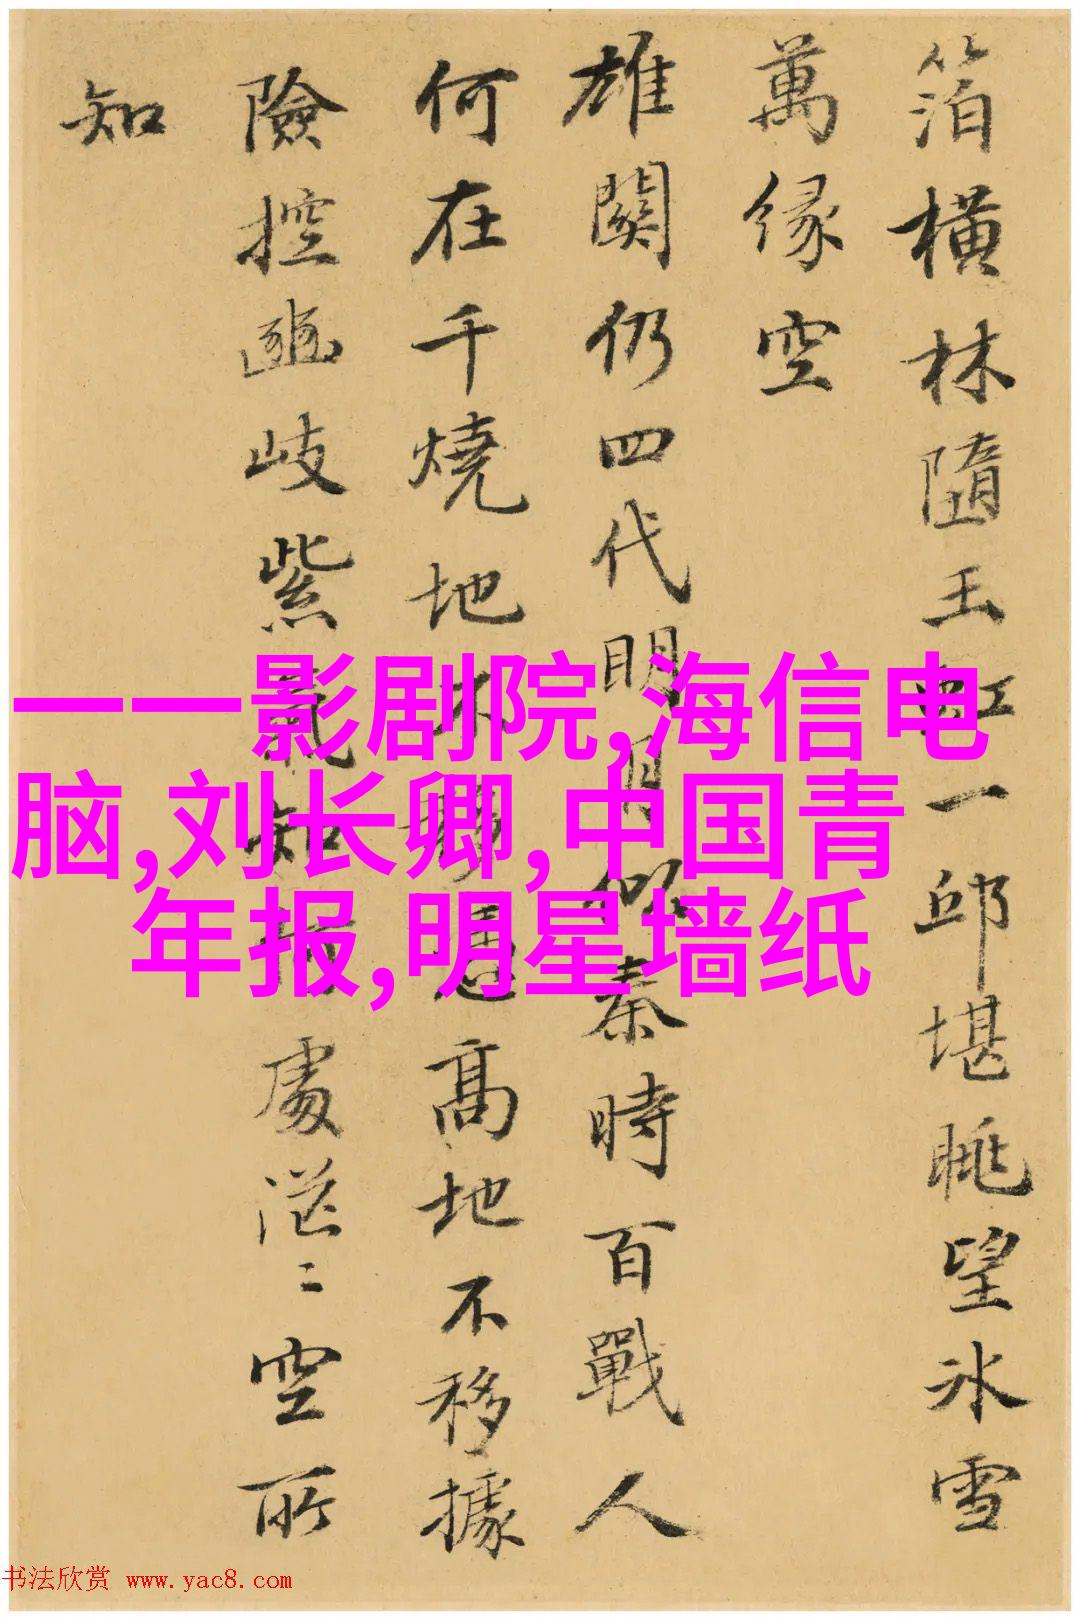 箔橫林隨玉虹一邱堪眺望冰雪
萬緣空
雄關仍四代明月似秦時百戰人
何在千燒地不移居高地不移據
險控幽岐紫氣知何處茫〻空所
知
一一影剧院,海信电
脑,刘长卿,中国青
年报,明星墙纸
书法欣赏 www.yac8.com